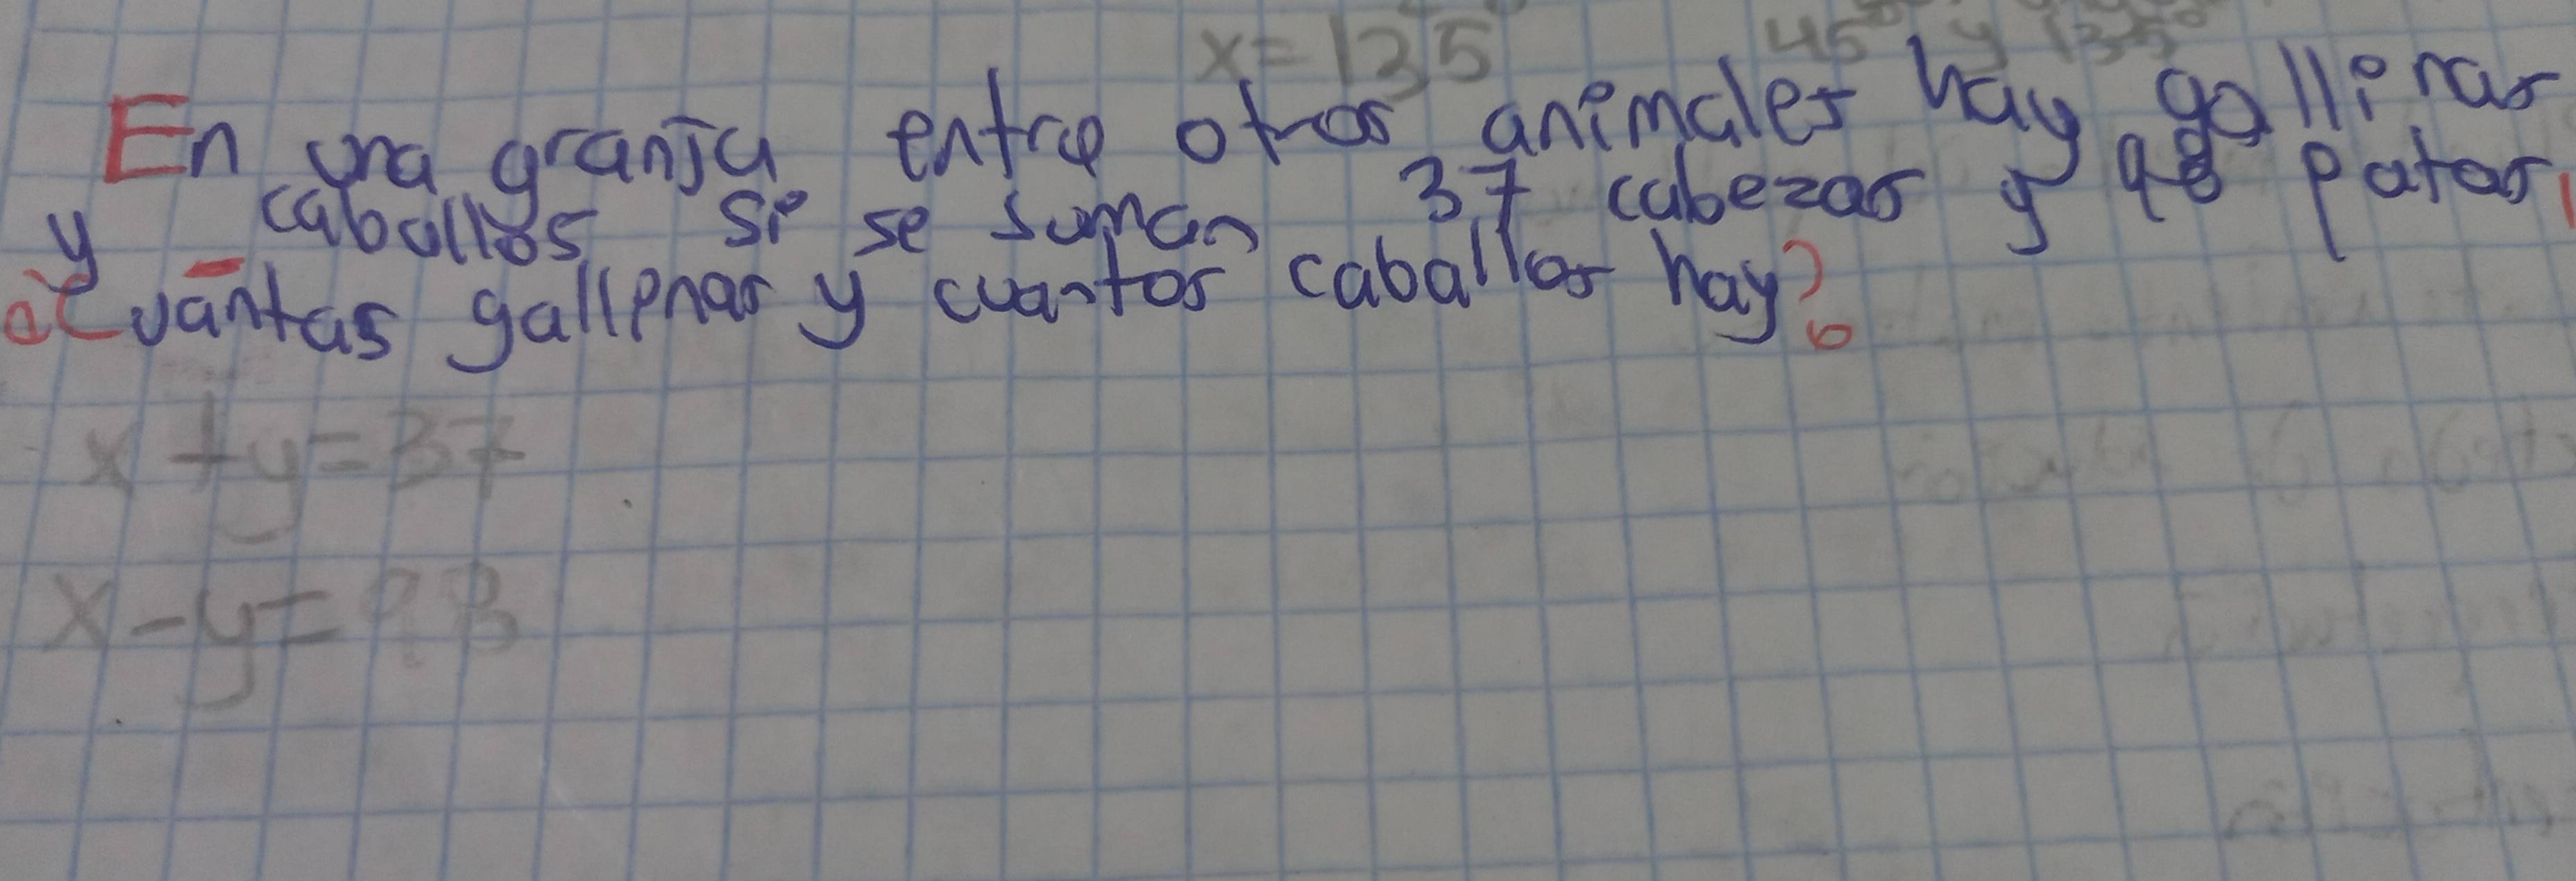 x=135° 45° y 135°
En una granja entre otros animales hay gallinas
y caballos si se suman 37 cabezas y 98 patas,
¿Cuantas gallinas y cuantos caballos hay?
x+y=37
x-y=98